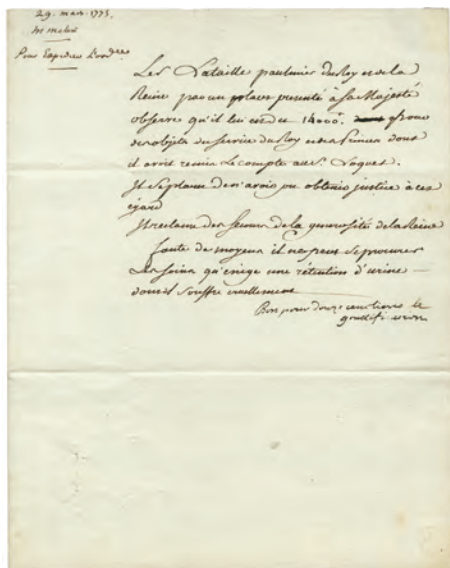 29. mars. 1775.
Pour Expedier l'ordre
Les Lataille paulmier du Roy et de la
Reine par un placet presenté à Sa Majesté
observe qu'il lui est du 14000# pour
des objets du service du Roy et des Princes dont
il avoit remis le compte au S. Loquet.
Il se plaint de n'avoir pu obtenir justice à cet
égard
Il reclame des secours de la generosité de la Reine
faute de moyens il ne peut se procurer
Les soins qu'exige une rétention d'urine
dont il souffre cruellement
Bon pour douze cent livres de
gratification